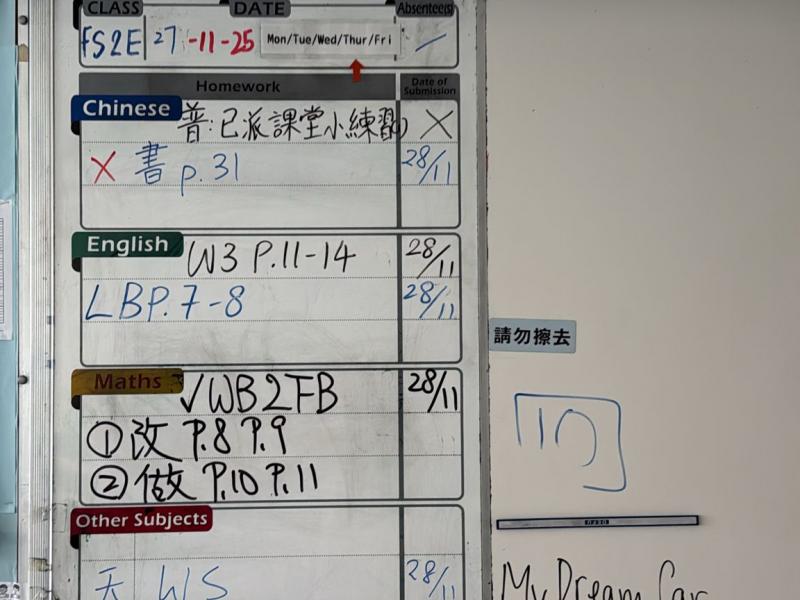 CLASS DATE Absentee(s)
FS2E 27-11-25 Mon/Tue/Wed/Thur/Fri
Homework Date of Submission
Chinese 普:已派課堂小練習(1) ×
× 書 p.31 28/11
English W3 P.11-14 28/11
LB P.7-8 28/11
請勿擦去
Maths √WB2FB 28/11
①改 P.8 P.9
②做 P.10 P.11
Other Subjects
天 WS 28/11
My Dream Car